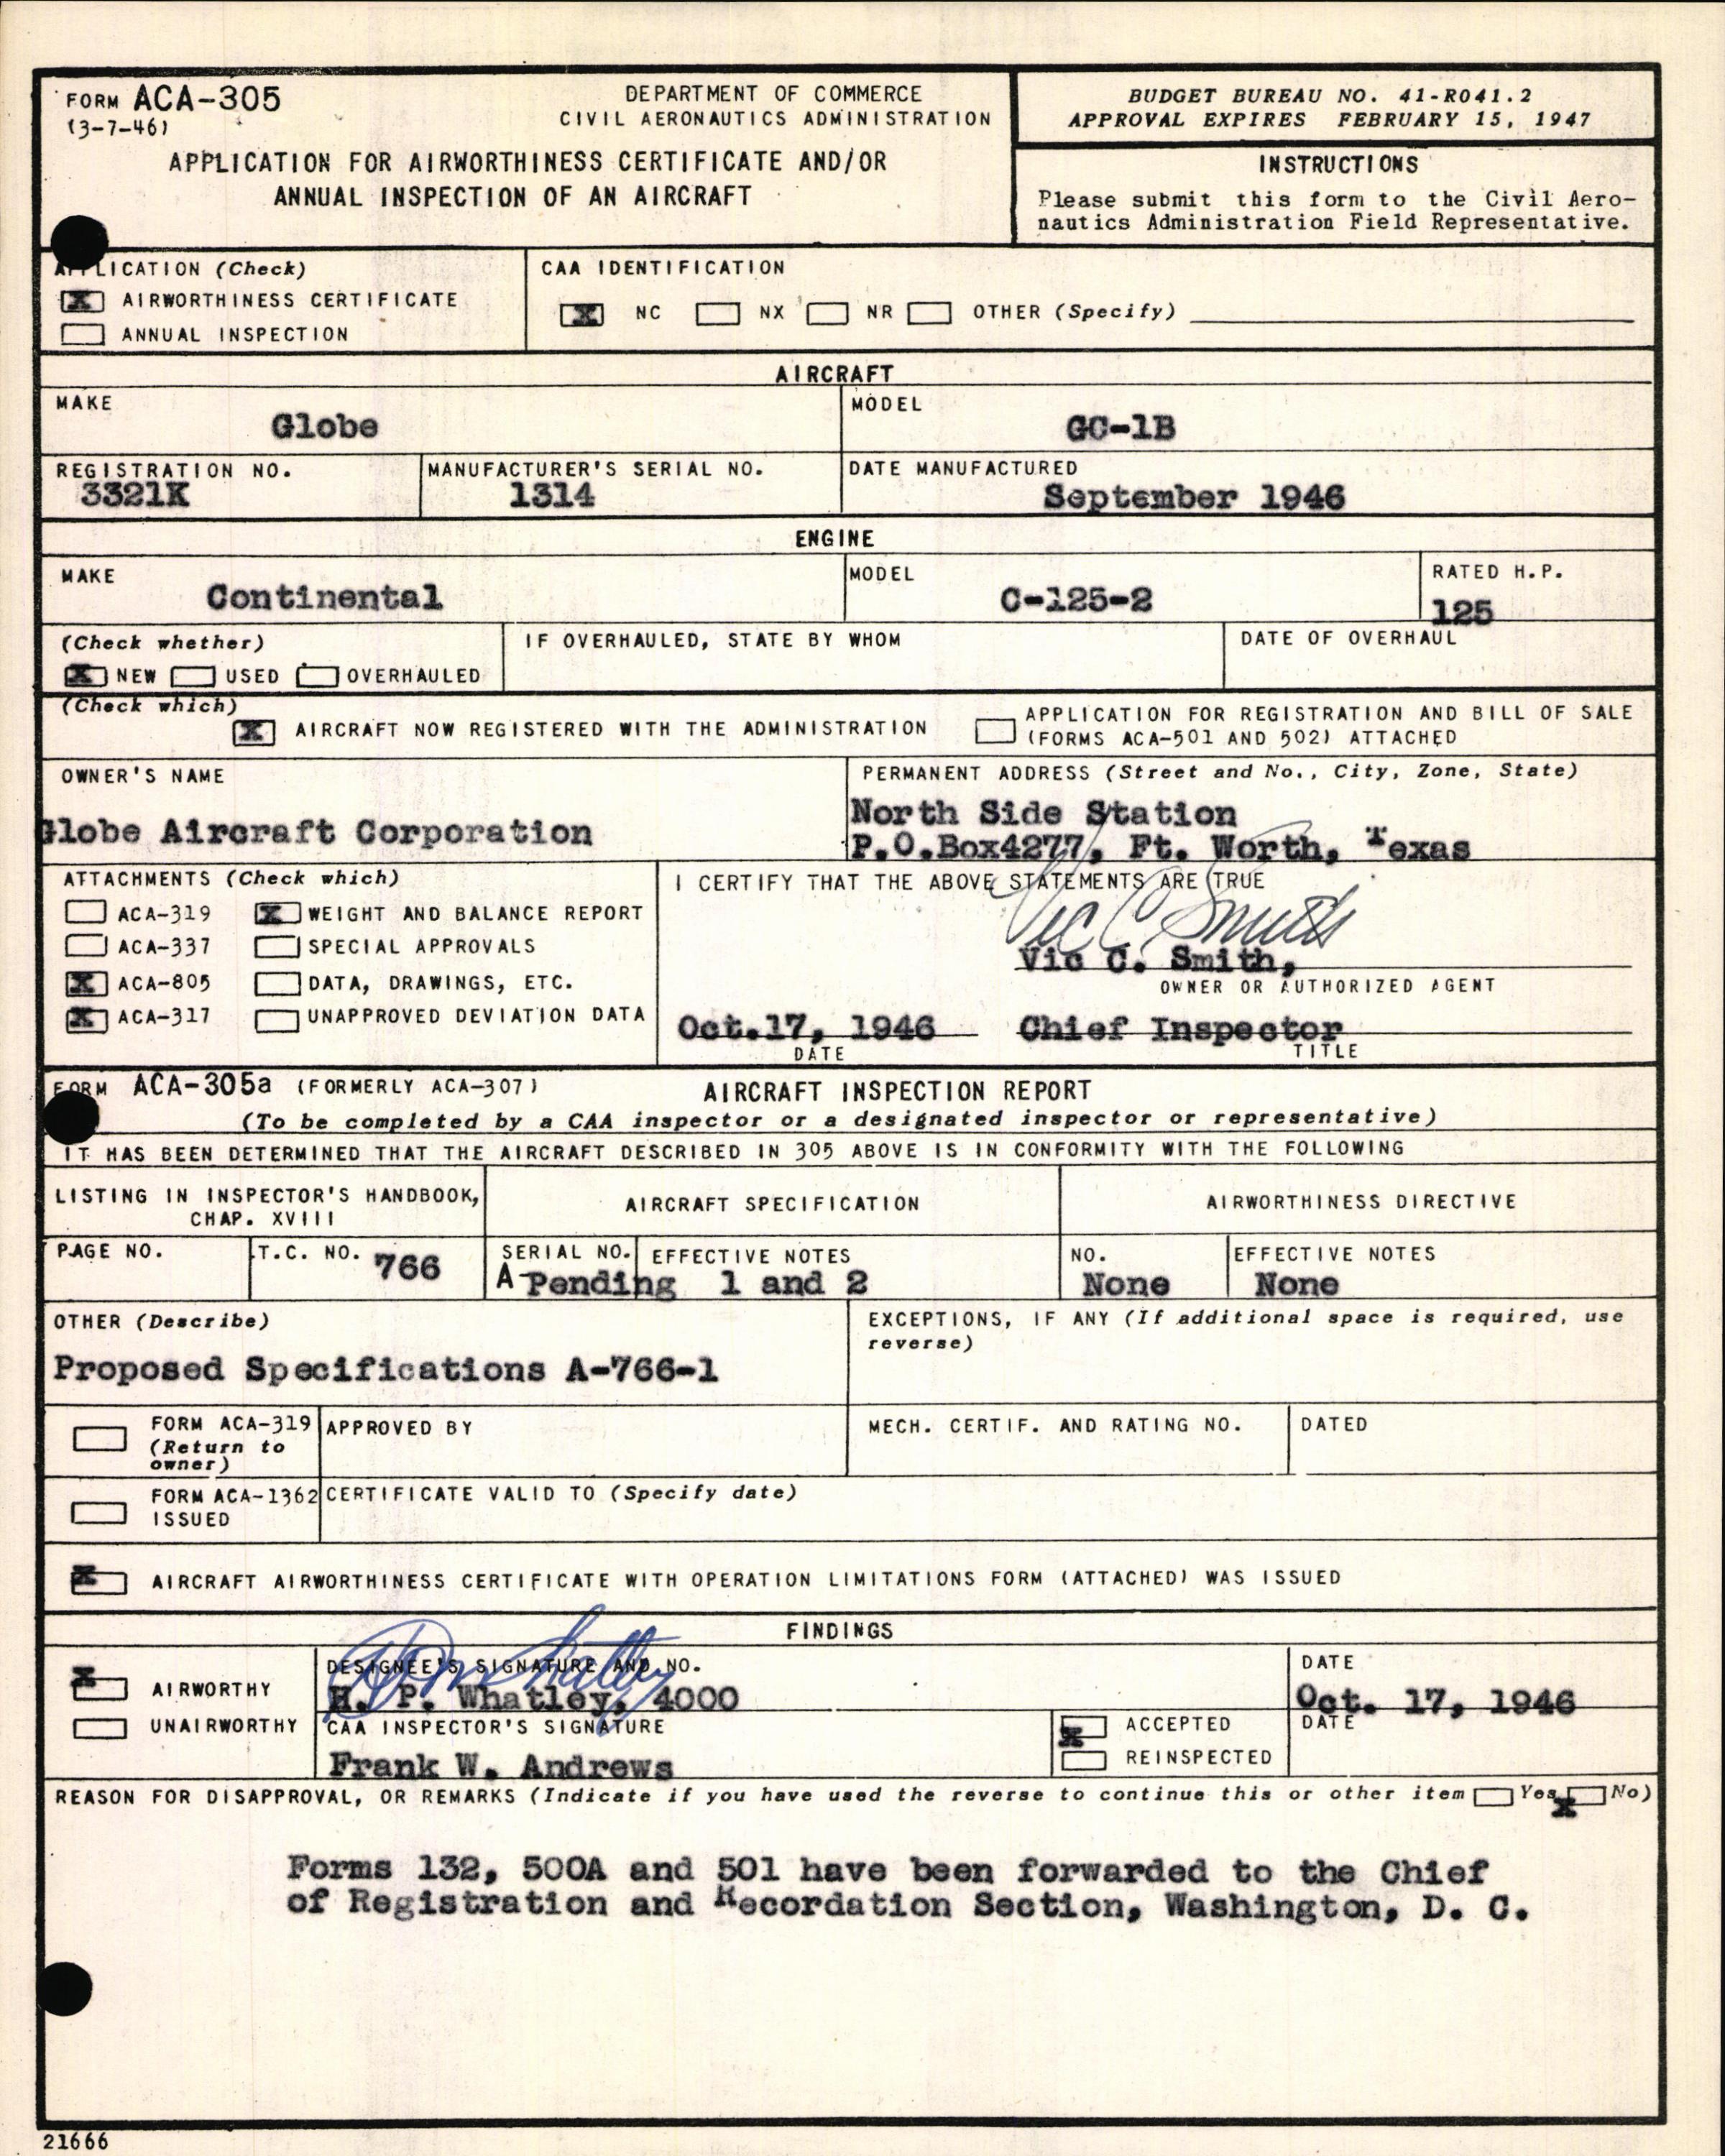 FORM ACA-305
(3-7-46)
DEPARTMENT OF COMMERCE
CIVIL AERONAUTICS ADMINISTRATION
APPLICATION FOR AIRWORTHINESS CERTIFICATE AND/OR
ANNUAL INSPECTION OF AN AIRCRAFT
BUDGET BUREAU NO. 41-R041.2
APPROVAL EXPIRES FEBRUARY 15, 1947
INSTRUCTIONS
Please submit this form to the Civil Aero-
nautics Administration Field Representative.
APPLICATION (Check)
X AIRWORTHINESS CERTIFICATE
ANNUAL INSPECTION
CAA IDENTIFICATION
X NC NX NR OTHER (Specify)
AIRCRAFT
MAKE
Globe
MODEL
GC-1B
REGISTRATION NO.
3321K
MANUFACTURER'S SERIAL NO.
1314
DATE MANUFACTURED
September 1946
ENGINE
MAKE
Continental
MODEL
C-125-2
RATED H.P.
125
(Check whether)
X NEW USED OVERHAULED
IF OVERHAULED, STATE BY WHOM
DATE OF OVERHAUL
(Check which)
X AIRCRAFT NOW REGISTERED WITH THE ADMINISTRATION
APPLICATION FOR REGISTRATION AND BILL OF SALE
(FORMS ACA-501 AND 502) ATTACHED
OWNER'S NAME
Globe Aircraft Corporation
PERMANENT ADDRESS (Street and No., City, Zone, State)
North Side Station
P.O.Box4277, Ft. Worth, Texas
ATTACHMENTS (Check which)
ACA-319 X WEIGHT AND BALANCE REPORT
ACA-337 SPECIAL APPROVALS
X ACA-805 DATA, DRAWINGS, ETC.
X ACA-317 UNAPPROVED DEVIATION DATA
I CERTIFY THAT THE ABOVE STATEMENTS ARE TRUE
Vic C Smith
Vic C. Smith,
OWNER OR AUTHORIZED AGENT
Oct.17, 1946 Chief Inspector
DATE TITLE
FORM ACA-305a (FORMERLY ACA-307) AIRCRAFT INSPECTION REPORT
(To be completed by a CAA inspector or a designated inspector or representative)
IT HAS BEEN DETERMINED THAT THE AIRCRAFT DESCRIBED IN 305 ABOVE IS IN CONFORMITY WITH THE FOLLOWING
LISTING IN INSPECTOR'S HANDBOOK,
CHAP. XVIII
AIRCRAFT SPECIFICATION
AIRWORTHINESS DIRECTIVE
PAGE NO.
T.C. NO. 766
SERIAL NO. EFFECTIVE NOTES
A-Pending 1 and 2
NO.
None
EFFECTIVE NOTES
None
OTHER (Describe)
Proposed Specifications A-766-1
EXCEPTIONS, IF ANY (If additional space is required, use
reverse)
FORM ACA-319
(Return to
owner)
APPROVED BY
MECH. CERTIF. AND RATING NO.
DATED
FORM ACA-1362
ISSUED
CERTIFICATE VALID TO (Specify date)
X AIRCRAFT AIRWORTHINESS CERTIFICATE WITH OPERATION LIMITATIONS FORM (ATTACHED) WAS ISSUED
FINDINGS
X AIRWORTHY
UNAIRWORTHY
DESIGNEE'S SIGNATURE AND NO.
H. P. Whatley, 4000
DATE
Oct. 17, 1946
CAA INSPECTOR'S SIGNATURE
Frank W. Andrews
X ACCEPTED
REINSPECTED
DATE
REASON FOR DISAPPROVAL, OR REMARKS (Indicate if you have used the reverse to continue this or other item Yes X No)
Forms 132, 500A and 501 have been forwarded to the Chief
of Registration and Recordation Section, Washington, D. C.
21666